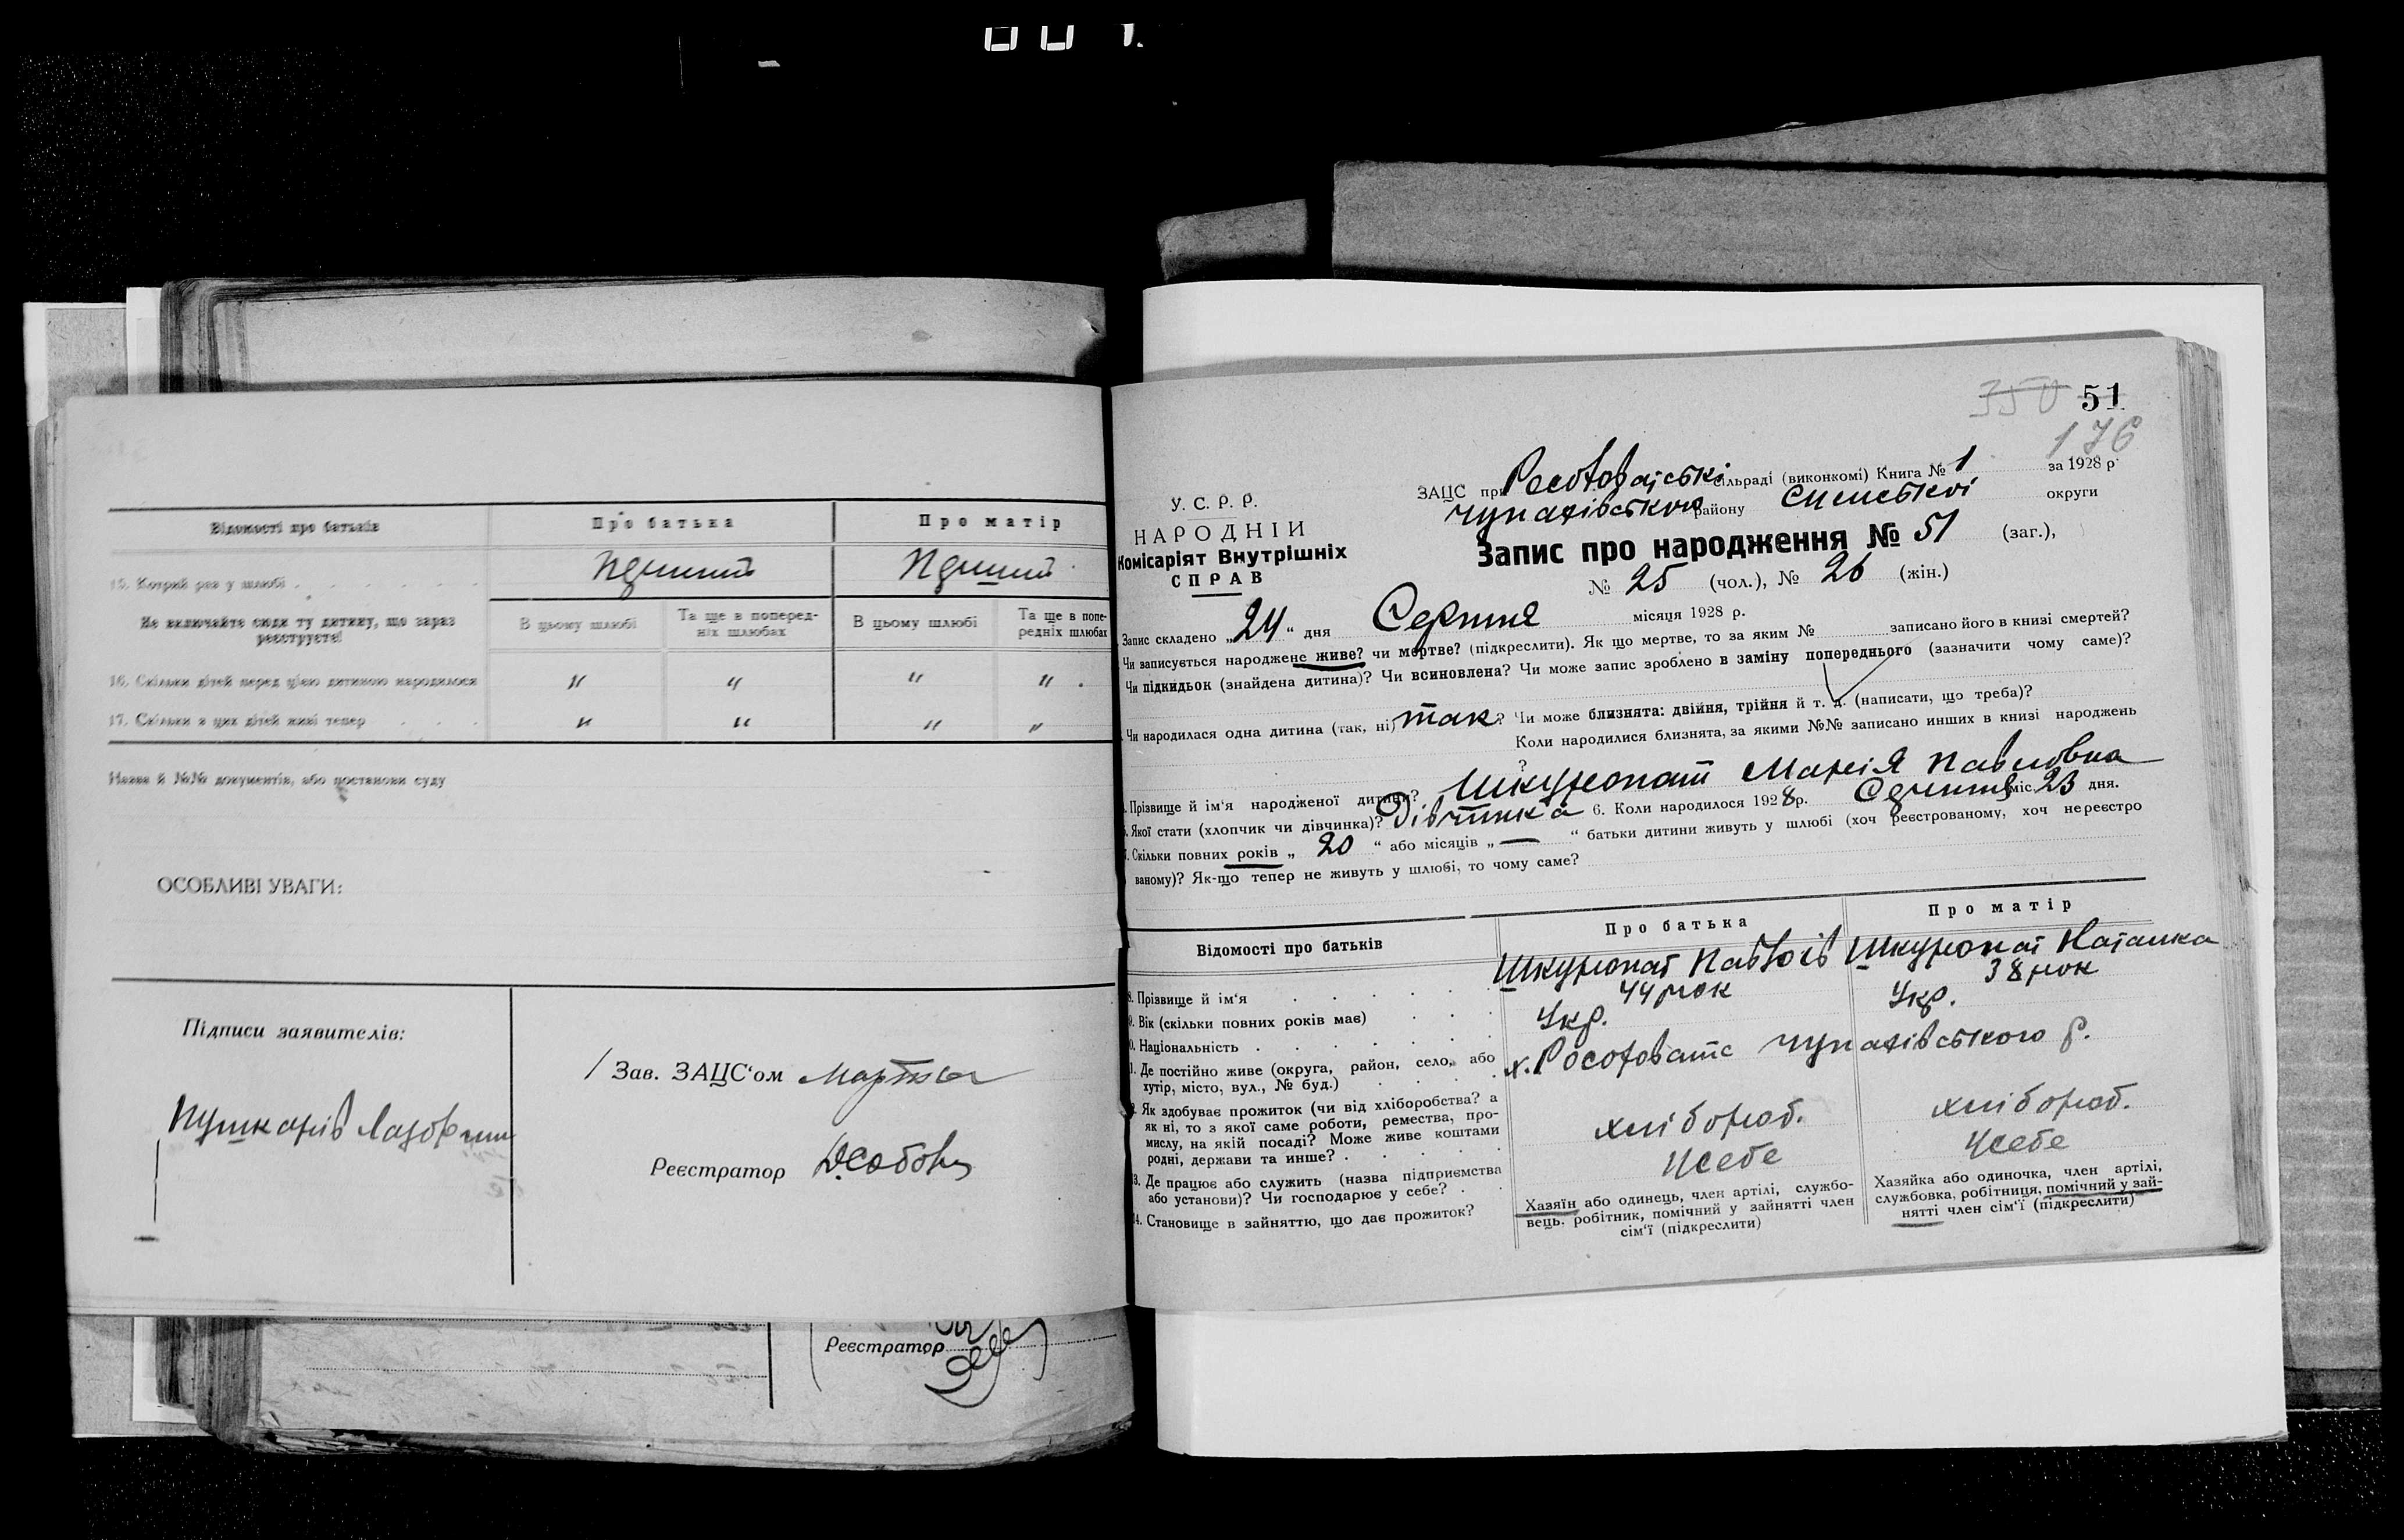 Відомості про батьків
Про батька
Про матір
15. Котрий раз у шлюбі
Не включайте сюди ту дитину, що зараз
реєструєте!
В цьому шлюбі
Та ще в поперед-
ніх шлюбах
В цьому шлюбі
Та ще в попе-
редніх шлюбах
16. Скільки дітей перед цією дитиною народилося " " " "
17. Скільки з цих дітей живі тепер " " " "
Назва й №№ документів, або постанови суду
ОСОБЛИВІ УВАГИ:
Підписи заявителів:
Зав. ЗАЦС'ом
Реєстратор
Реєстратор
350 51
176
У.С.Р.Р.
НАРОДНІЙ
Комісаріят Внутрішніх
СПРАВ
ЗАЦС при сільраді (виконкомі) Книга № 1 за 1928 р.
району округи
Запис про народження № 51 (заг.),
№ 25 (чол.), № 26 (жін.)
Запис складено „24“ дня Серпня місяця 1928 р.
Чи записується народжене живе? чи мертве? (підкреслити). Як що мертве, то за яким № записано його в книзі смертей?
Чи підкидьок (знайдена дитина)? Чи всиновлена? Чи може запис зроблено в заміну попереднього (зазначити чому саме)?
Чи народилася одна дитина (так, ні) так? Чи може близнята: двійня, трійня й т. д. (написати, що треба)?
Коли народилися близнята, за якими №№ записано инших в книзі народжень
?
Прізвище й ім'я народженої дитини? Шкуропат Марія Павловна
Якої стати (хлопчик чи дівчинка)? Дівчинка 6. Коли народилося 1928 р. Серпня міс. 23 дня.
Скільки повних років „ 20 “ або місяців „ — “ батьки дитини живуть у шлюбі (хоч реєстрованому, хоч нереєстро
ваному)? Як-що тепер не живуть у шлюбі, то чому саме?
Відомості про батьків
Про батька
Про матір
8. Прізвище й ім'я Шкуропат Шкуропат Наталка
9. Вік (скільки повних років має) 44 рок 38 рок
0. Національність Укр. Укр.
1. Де постійно живе (округа, район, село, або
хутір, місто, вул., № буд.)
Як здобуває прожиток (чи від хліборобства? а
як ні, то з якої саме роботи, ремества, про-
мислу, на якій посаді? Може живе коштами
родні, держави та инше?
хлібороб. хлібороб.
3. Де працює або служить (назва підприємства
або установи)? Чи господарює у себе?
Усебе Усебе
14. Становище в зайняттю, що дає прожиток?
Хазяїн або одинець, член артілі, службо-
вець, робітник, помічний у зайнятті член
сім'ї (підкреслити)
Хазяйка або одиночка, член артілі,
службовка, робітниця, помічний у зай-
нятті член сім'ї (підкреслити)